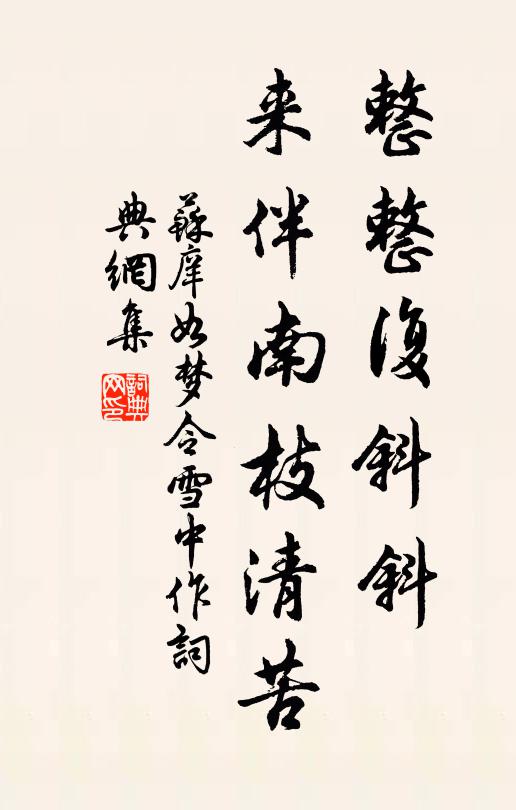 整整復斜斜
来伴南枝清苦
蘇庠如梦令雪中作詞
典網集
詞典
网印